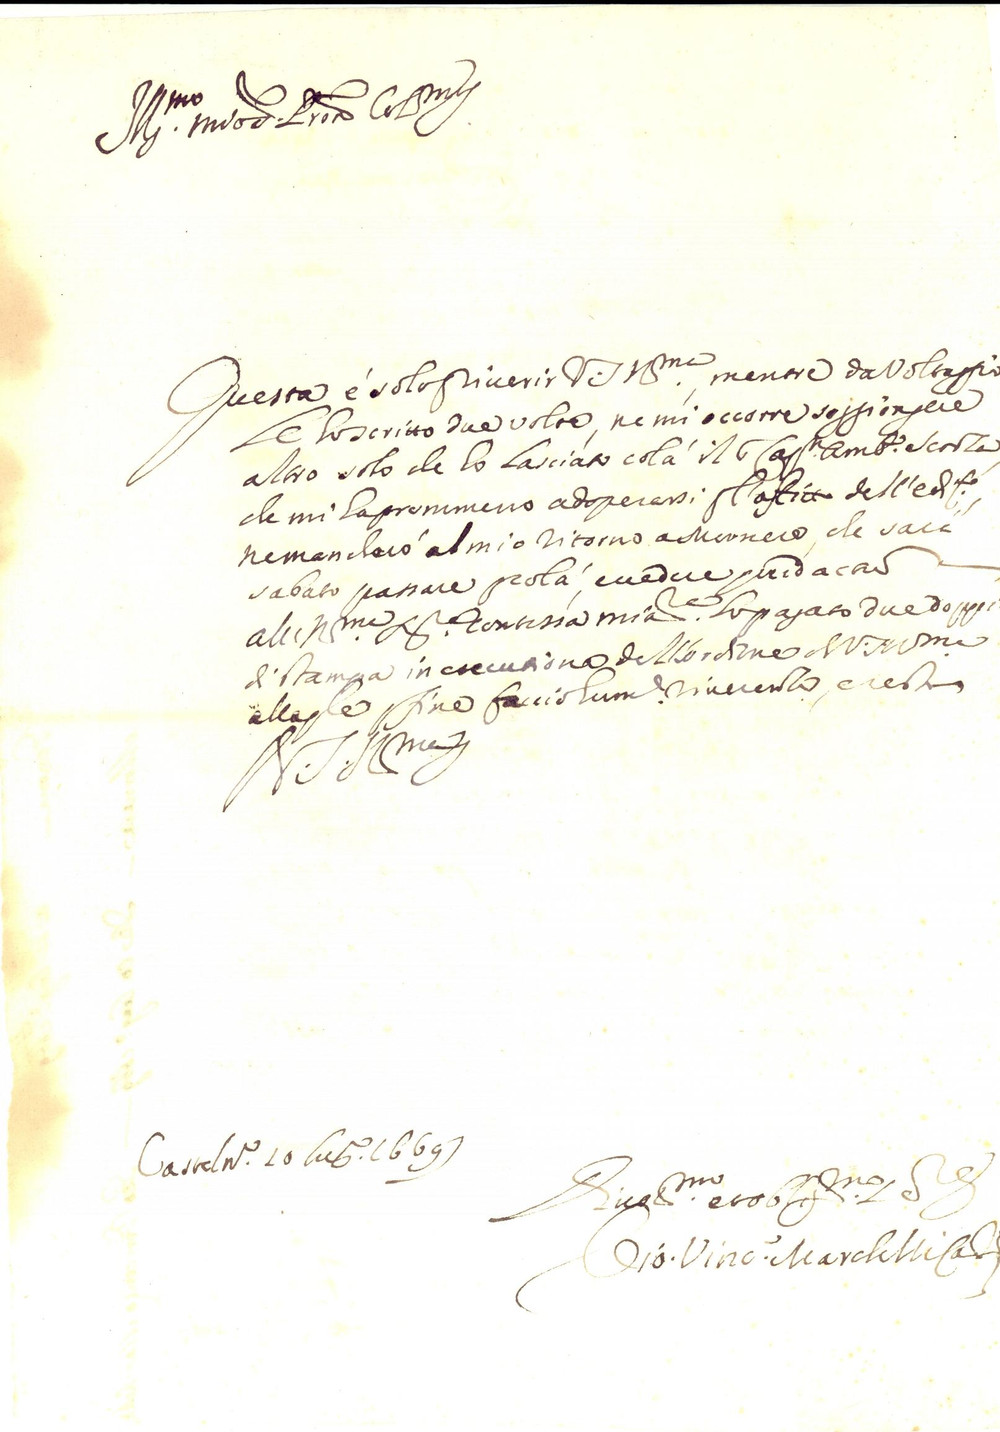 Ill.mo mio Sr. Pron Col.mo
Questa é solo p riuerir V.S. Ill.ma, mentre da Voltaggio
Le ho scritto due volte, ne mi occorre soggiongere
altro solo che ho lasciato colá il Sr Cap.n Amb.o Scorza
che mi ha promesso adoperarsi p l'afitto dell'edif.o
ne mancheró al mio ritorno a Mornese, che sará
sabato passare p colá, e uedere
all' Ill.ma Sig.ra Contessa mia Sig.ra ho pagato due doppie
di stampa in esecutione dell'ordine di V.S. Ill.ma
alla p fine faccio hum. riuerenza, e resto
V.S. Ill.ma
Casteln.o 10 lug.o 1669
Deuot.mo et oblig.mo Ser
Gio. Vinc.o Marchelli